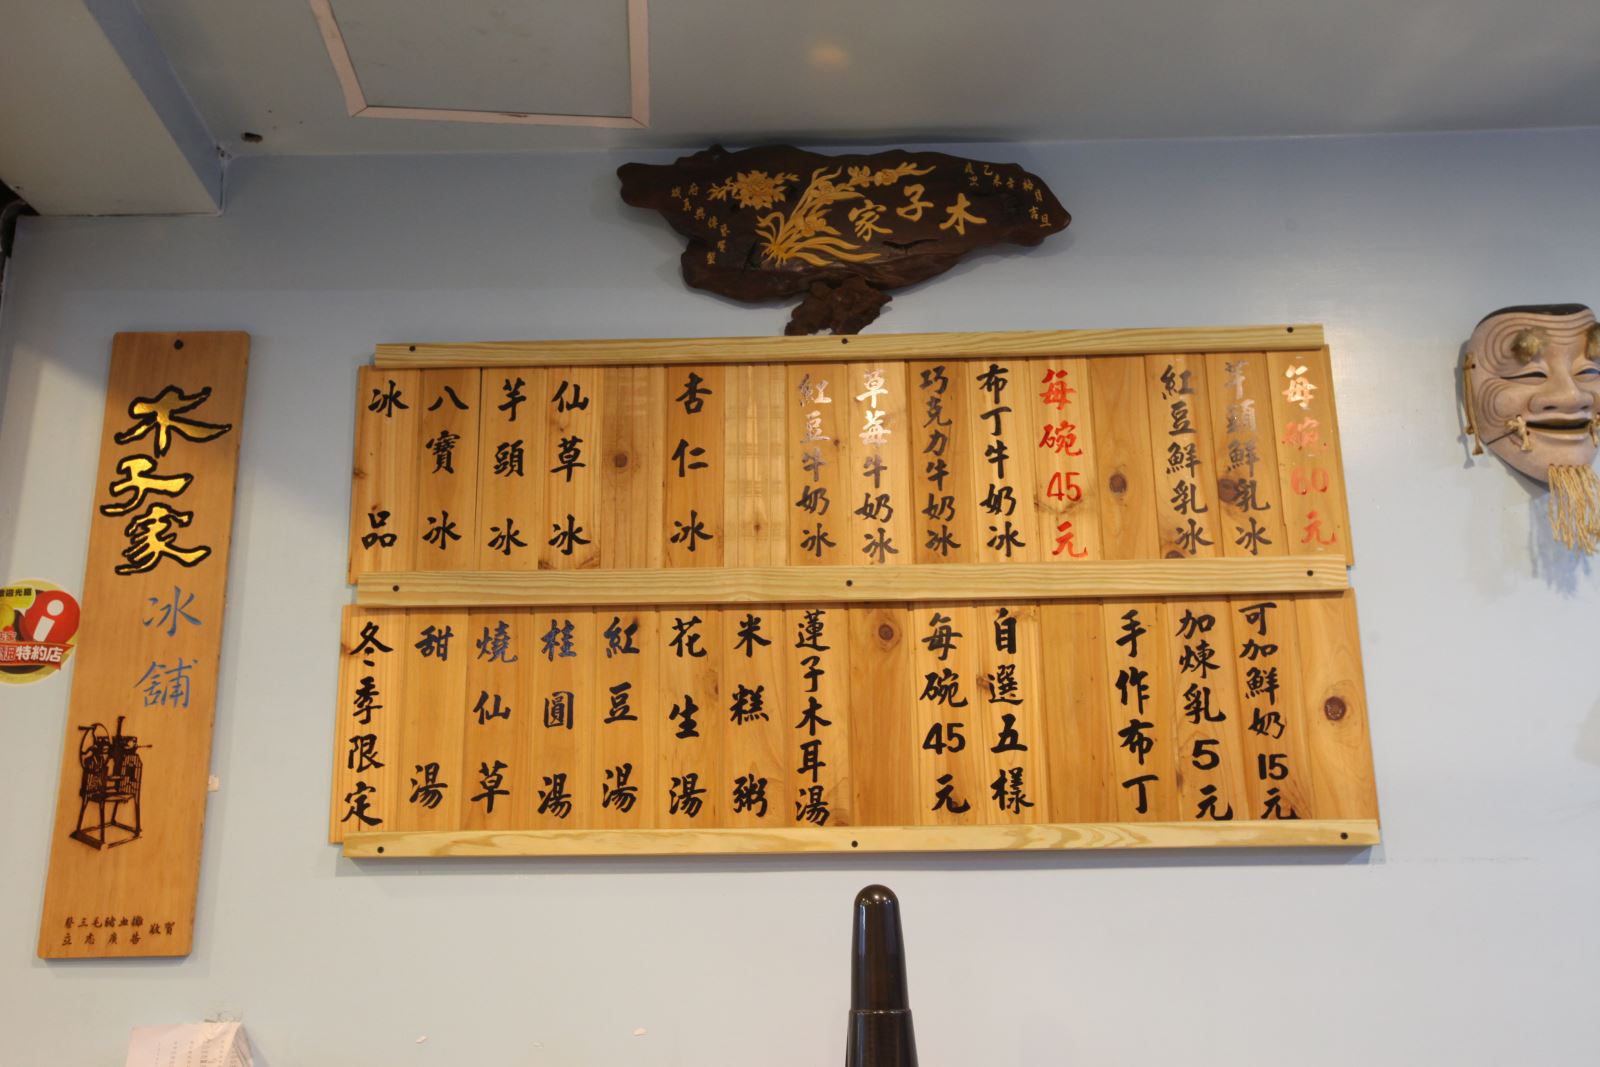 木子家
乙未年梅月吉旦
木子家
冰舖
蔡三毛豬血攤
立志廣告
敬賀
特約店
冰品
八寶冰
芋頭冰
仙草冰
杏仁冰
紅豆牛奶冰
草莓牛奶冰
巧克力牛奶冰
布丁牛奶冰
每碗45元
紅豆鮮乳冰
芋頭鮮乳冰
每碗60元
冬季限定
甜湯
燒仙草
桂圓湯
紅豆湯
花生湯
米糕粥
蓮子木耳湯
每碗45元
自選五樣
手作布丁
加煉乳5元
可加鮮奶15元